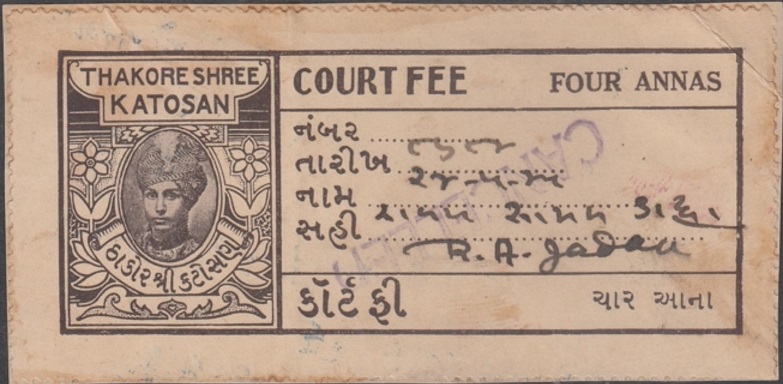 THAKORE SHREE
KATOSAN
ઠાકોરશ્રી કટોસણ
COURT FEE FOUR ANNAS
નંબર
તારીખ
નામ
સહી
R. A. Jadav
CANCELLED
કૉર્ટ ફી ચાર આના